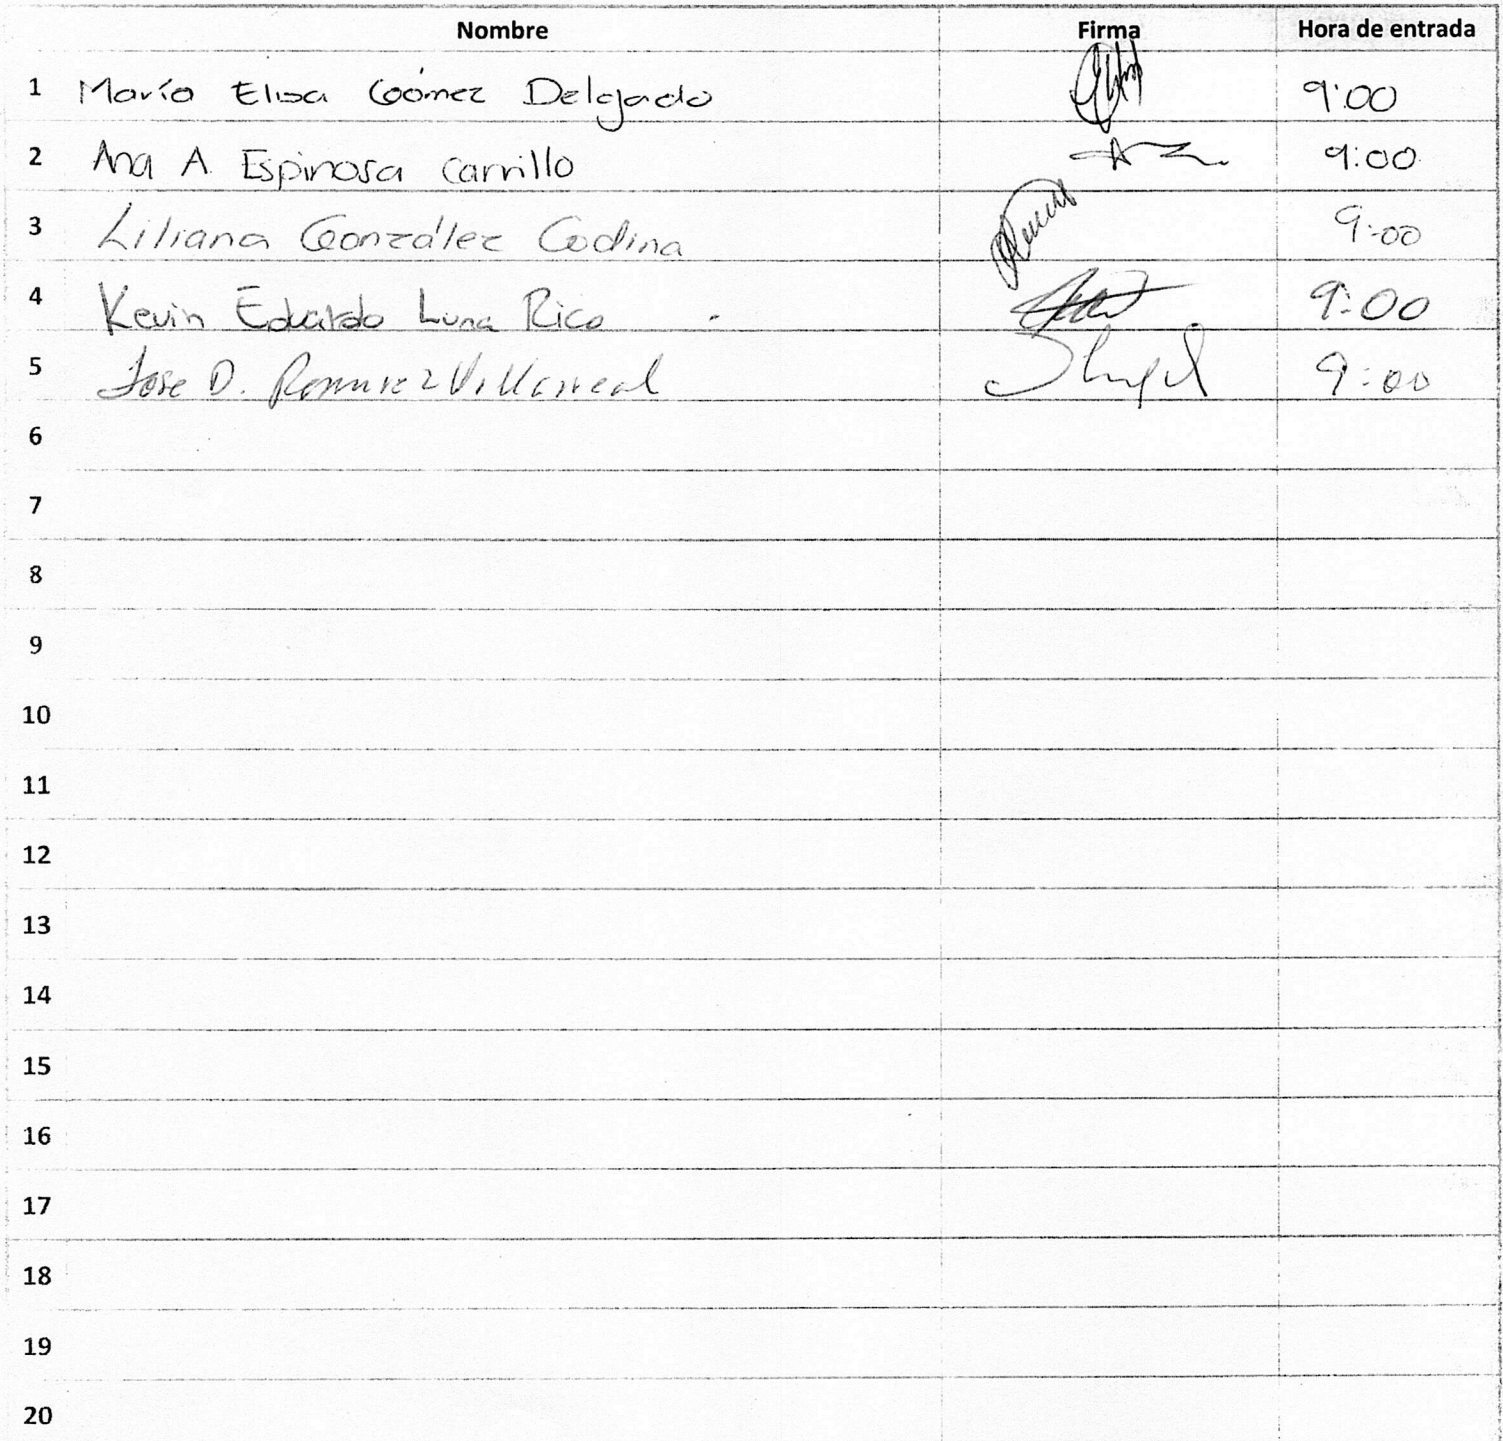 Nombre Firma Hora de entrada
1 María Elisa Gómez Delgado 9:00
2 Ana A. Espinosa Carrillo 9:00
3 Liliana González Codina 9:00
4 Kevin Eduardo Luna Rico 9:00
5 Jose D. Ramirez Villarreal 9:00
6
7
8
9
10
11
12
13
14
15
16
17
18
19
20